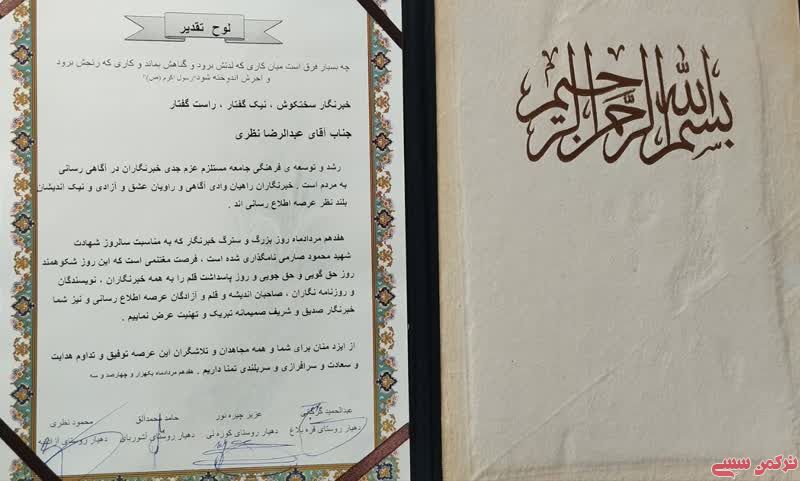 لوح تقدیر
چه بسیار فرق است میان کاری که لذتش برود و گناهش بماند و کاری که رنجش برود
و اجرش اندوخته شود "رسول اکرم (ص)"
خبرنگار سختکوش ، نیک گفتار ، راست گفتار
جناب آقای عبدالرضا نظری
رشد و توسعه ی فرهنگی جامعه مستلزم عزم جدی خبرنگاران در آگاهی رسانی
به مردم است . خبرنگاران راهیان وادی آگاهی و راویان عشق و آزادی و نیک اندیشان
بلند نظر عرصه اطلاع رسانی اند .
هفدهم مردادماه روز بزرگ و سترگ خبرنگار که به مناسبت سالروز شهادت
شهید محمود صارمی نامگذاری شده است ، فرصت مغتنمی است که این روز شکوهمند
روز حق گویی و حق جویی و روز پاسداشت قلم را به همه خبرنگاران ، نویسندگان
و روزنامه نگاران ، صاحبان اندیشه و قلم و آزادگان عرصه اطلاع رسانی و نیز شما
خبرنگار صدیق و شریف صمیمانه تبریک و تهنیت عرض نماییم .
از ایزد منان برای شما و همه مجاهدان و تلاشگران این عرصه توفیق و تداوم هدایت
و سعادت و سرافرازی و سربلندی تمنا داریم . هفدهم مردادماه یکهزار و چهارصد و سه
عبدالحمید عزیز چیره نور حامد محمدآلق محمود نظری
دهیار روستای قره بلاغ دهیار روستای دهیار روستای دهیار روستای
بسم الله الرحمن الرحیم
ترکمن سسی